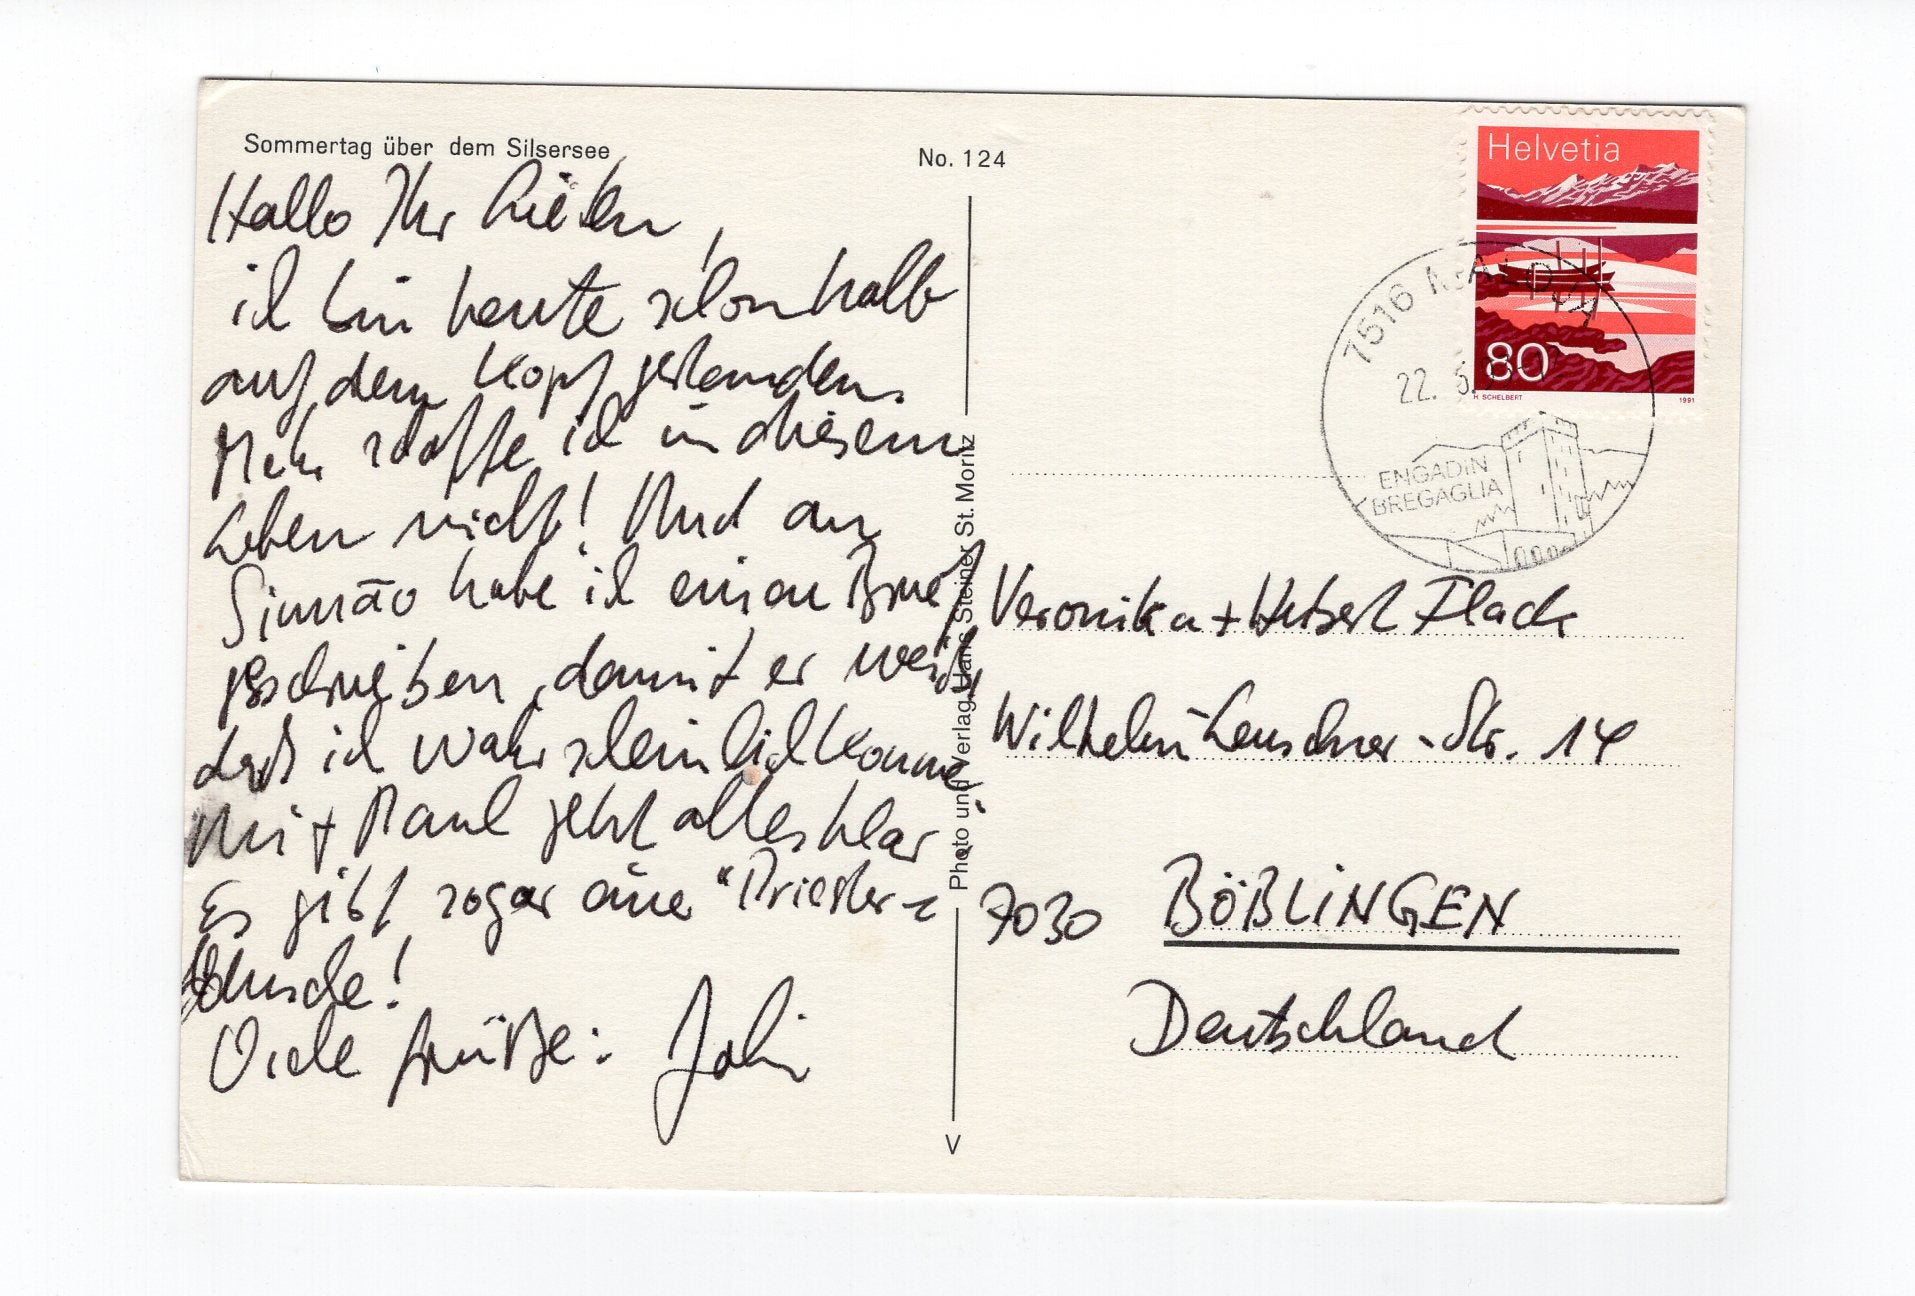 Sommertag über dem Silsersee
No. 124
Hallo Ihr Lieben,
ich bin heute schon halb
auf dem Kopf gestanden.
Mehr schaffe ich in diesem
Leben nicht! Und an
Simão habe ich einen Brief
geschrieben, damit er weiß,
daß ich wahrscheinlich komme.
Mit Paul jetzt alles klar
Es gibt sogar eine "Priester-
Stunde!
Viele Grüße:
Photo und Verlag Hans Steiner St. Moritz
V
Helvetia
80
H. SCHELBERT
1991
7516 MALOJA
22. 5.
ENGADIN
BREGAGLIA
Veronika + Hubert Flack
Wilhelm-Leuschner-Str. 14
7030 BÖBLINGEN
Deutschland